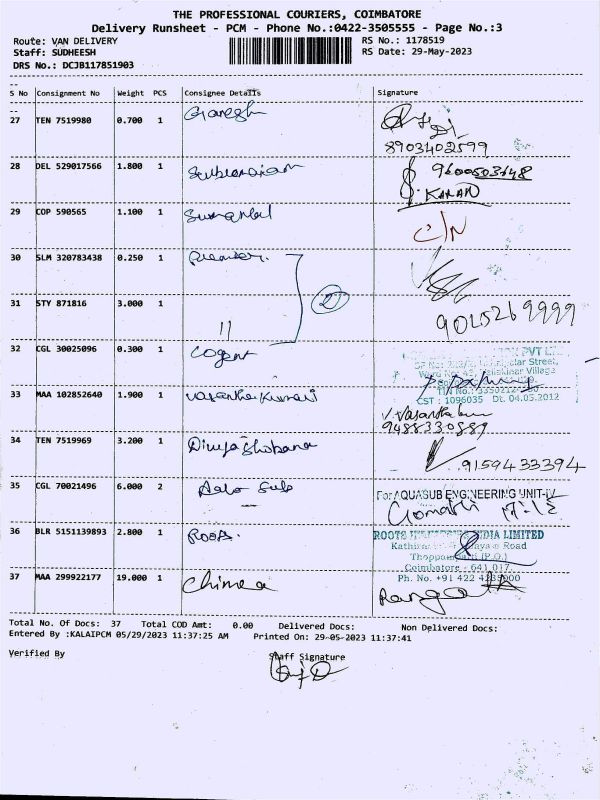 THE PROFESSIONAL COURIERS, COIMBATORE
Delivery Runsheet - PCM - Phone No.:0422-3505555 - Page No.:3
Route: VAN DELIVERY RS No.: 1178519
Staff: SUDHEESH RS Date: 29-May-2023
DRS No.: DCJB117851903
S No Consignment No Weight PCS Consignee Details Signature
27 TEN 7519980 0.700 1 Ganesh
8903402599
28 DEL 529017566 1.800 1 9600503648
KARAN
29 COP 590565 1.100 1 C/N
30 SLM 320783438 0.250 1 Premier.
31 STY 871816 3.000 1 11 2 9015269999
32 CGL 30025096 0.300 1 Cogent PVT LTD
Street,
Village
CST : 1096035 Dt. 04.05.2012
33 MAA 102852640 1.900 1 Vasantha Kumari V. Vasantha
9488330889
34 TEN 7519969 3.200 1 Divya Shobana 9159433394
35 CGL 70021496 6.000 2 Aqua Sub For AQUASUB ENGINEERING UNIT-IV
Gomathi
36 BLR 5151139893 2.800 1 Roots. ROOTS INDIA LIMITED
Road
(P.O.)
Coimbatore - 641 017
37 MAA 299922177 19.000 1 Chimea Ph. No. +91 422 4235000
Total No. Of Docs: 37 Total COD Amt: 0.00 Delivered Docs: Non Delivered Docs:
Entered By :KALAIPCM 05/29/2023 11:37:25 AM Printed On: 29-05-2023 11:37:41
Verified By Staff Signature